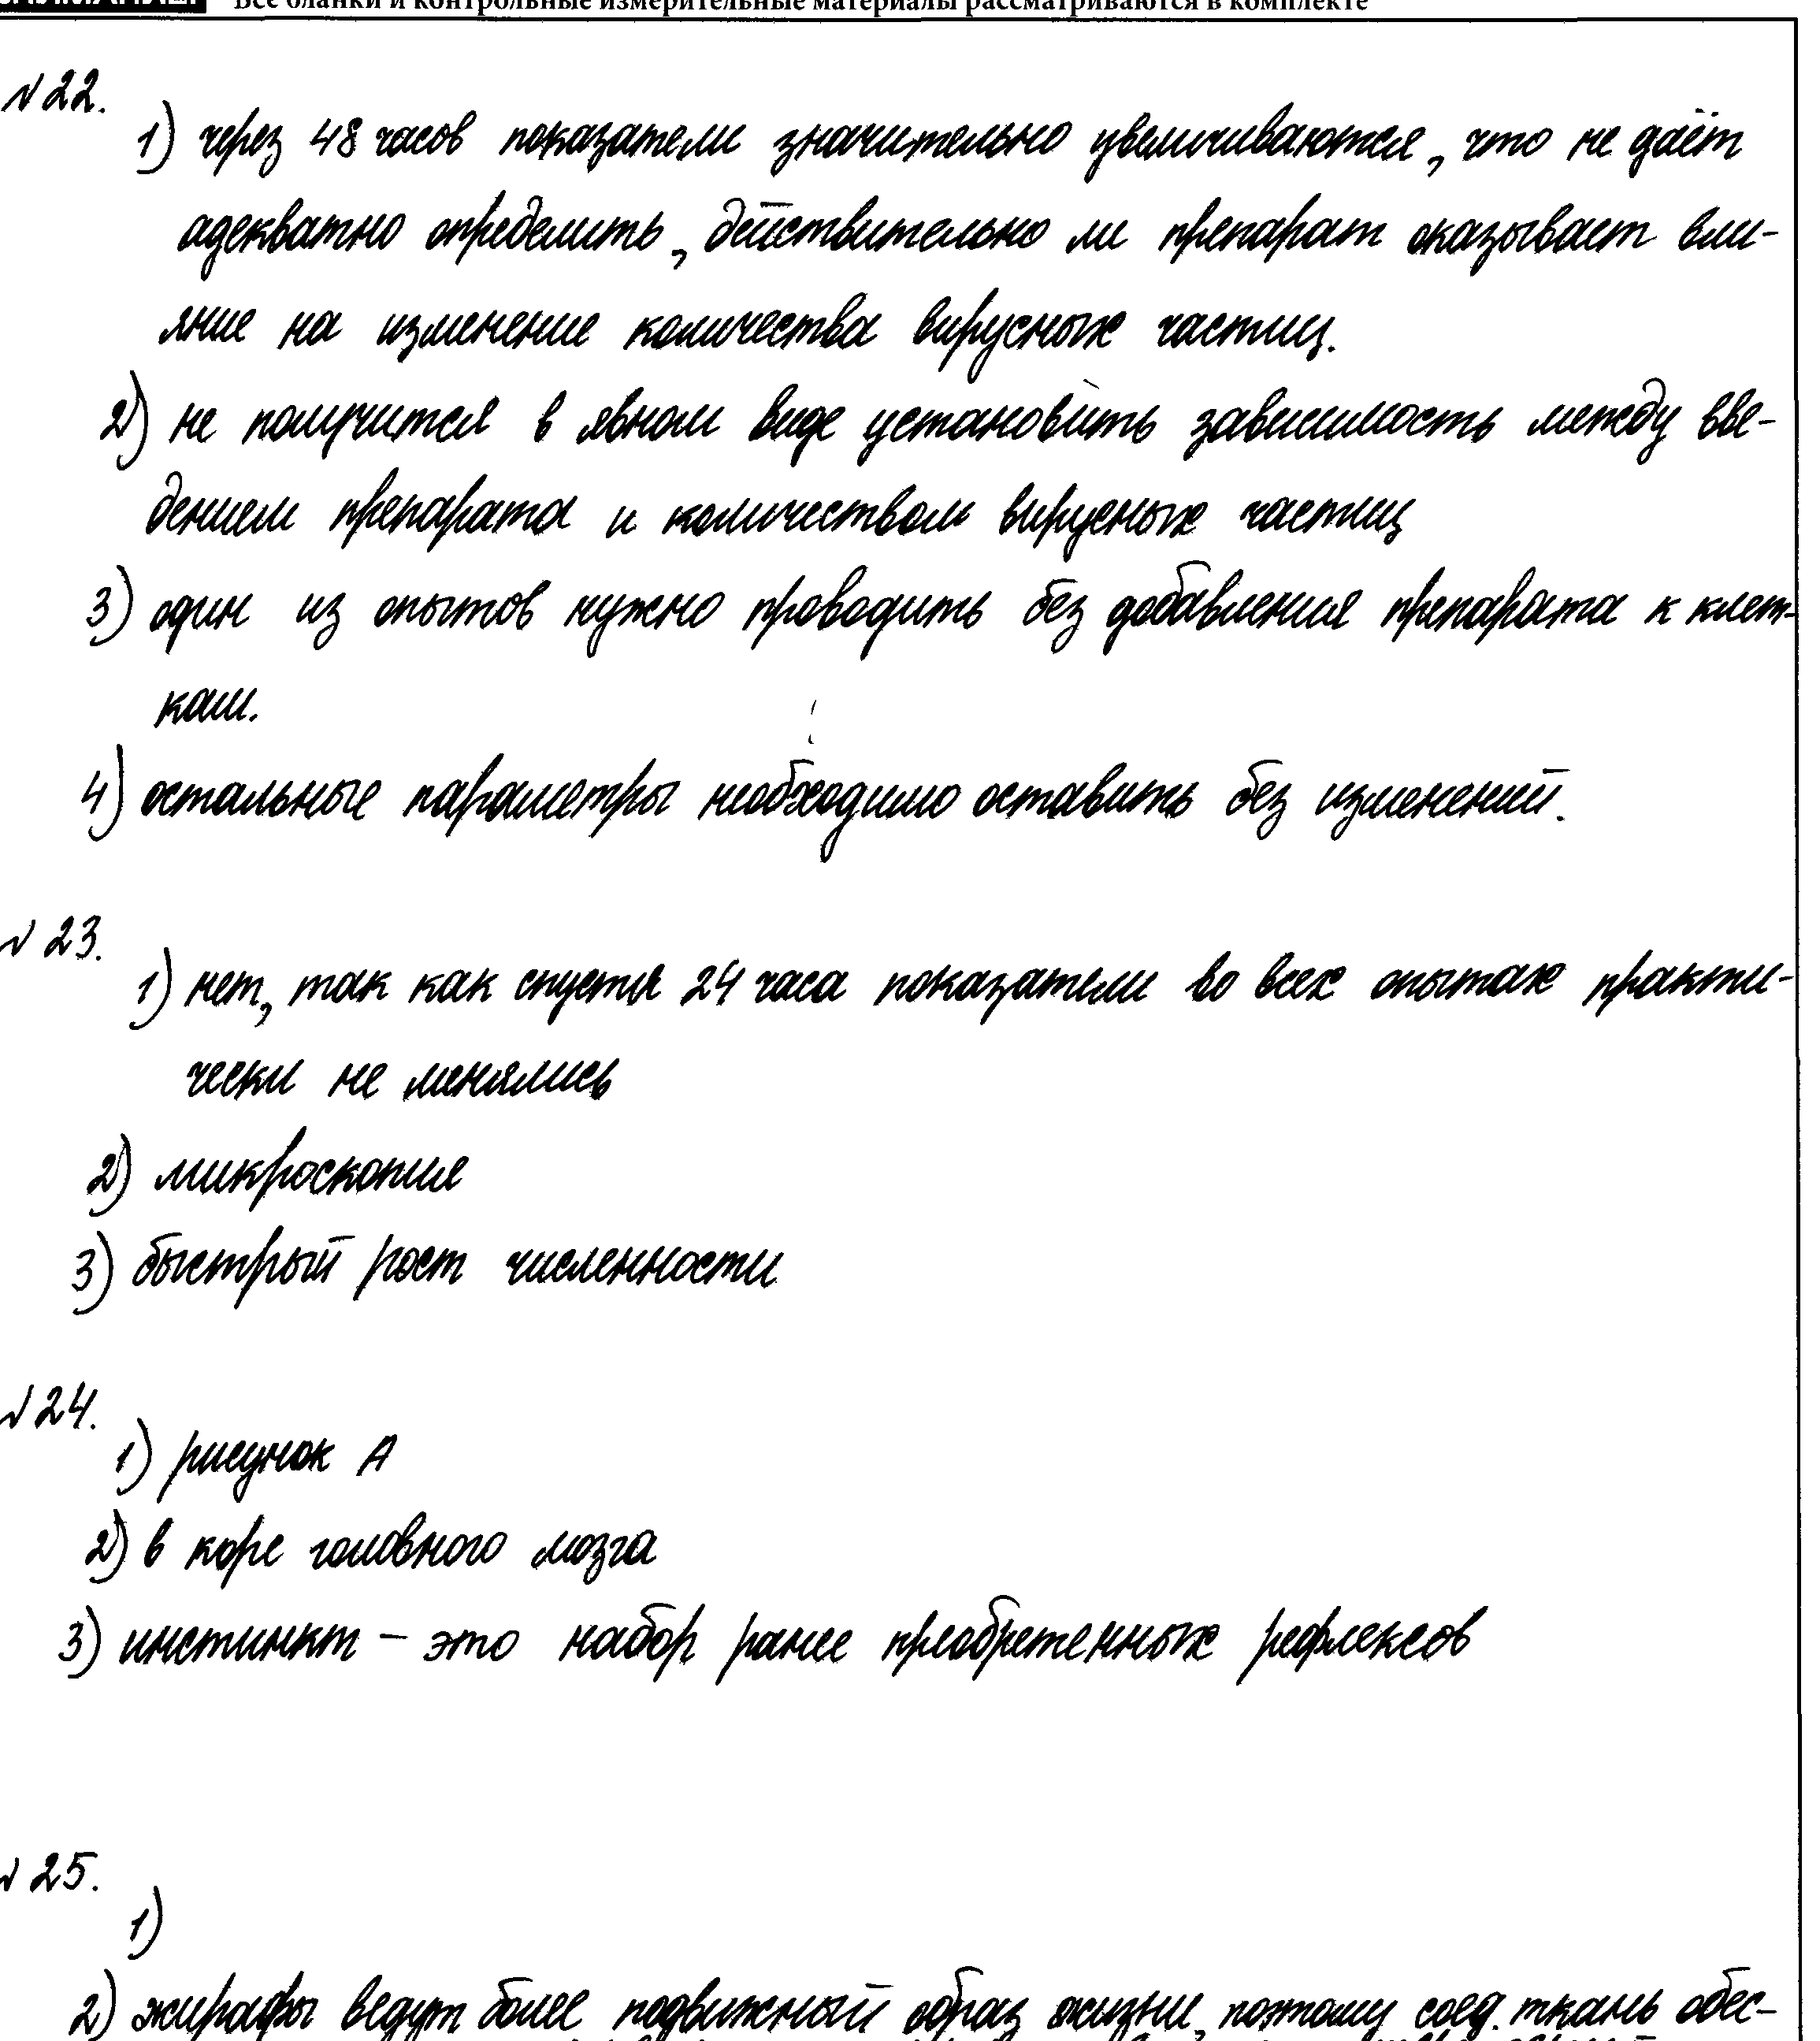 Все бланки и контрольные измерительные материалы рассматриваются в комплекте
№22.
1) через 48 часов показатели значительно увеличиваются, что не даёт
адекватно определить, действительно ли препарат оказывает вли-
яние на изменение количества вирусных частиц.
2) не получится в явном виде установить зависимость между вве-
дением препарата и количеством вирусных частиц
3) один из опытов нужно проводить без добавления препарата к клет-
кам.
4) остальные параметры необходимо оставить без изменений.
№23.
1) нет, так как спустя 24 часа показатели во всех опытах практи-
чески не менялись
2) микроскопия
3) быстрый рост численности
№24.
1) рисунок А
2) в коре головного мозга
3) инстинкт – это набор ранее приобретенных рефлексов
№25.
1)
2) жирафы ведут более подвижный образ жизни, поэтому соед. ткань обес-